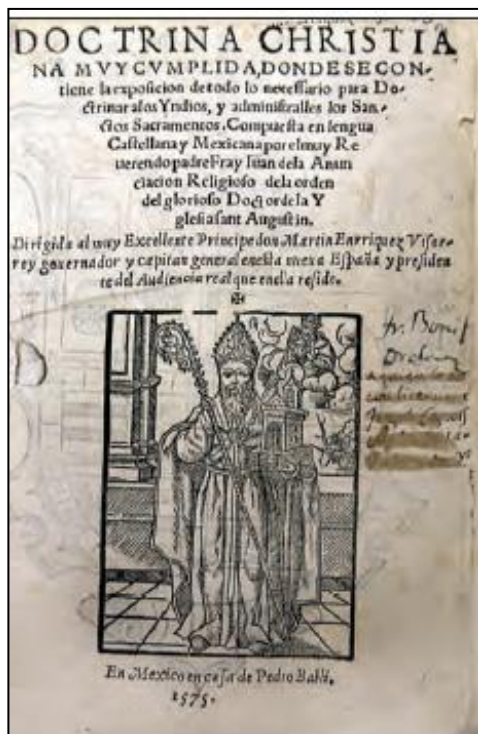 DOCTRINA CHRISTIA
NA MVY CVMPLIDA, DONDE SE CON-
tiene la exposicion de todo lo necessario para Do-
ctrinar a los Yndios, y administralles los San-
ctos Sacramentos. Compuesta en lengua
Castellana y Mexicana por el muy Re
uerendo padre Fray Iuan de la Anun
ciacion Religioso de la orden
del glorioso Doctor de la Y
glesia sant Augustin.
Dirigida al muy Excellente Principe don Martin Enrriquez Visor-
rey gouernador y capitan general en esta nueua España y presiden
te del Audiencia real que en ella reside.
✠
fr. Boni
En Mexico en casa de Pedro Balli.
1575.